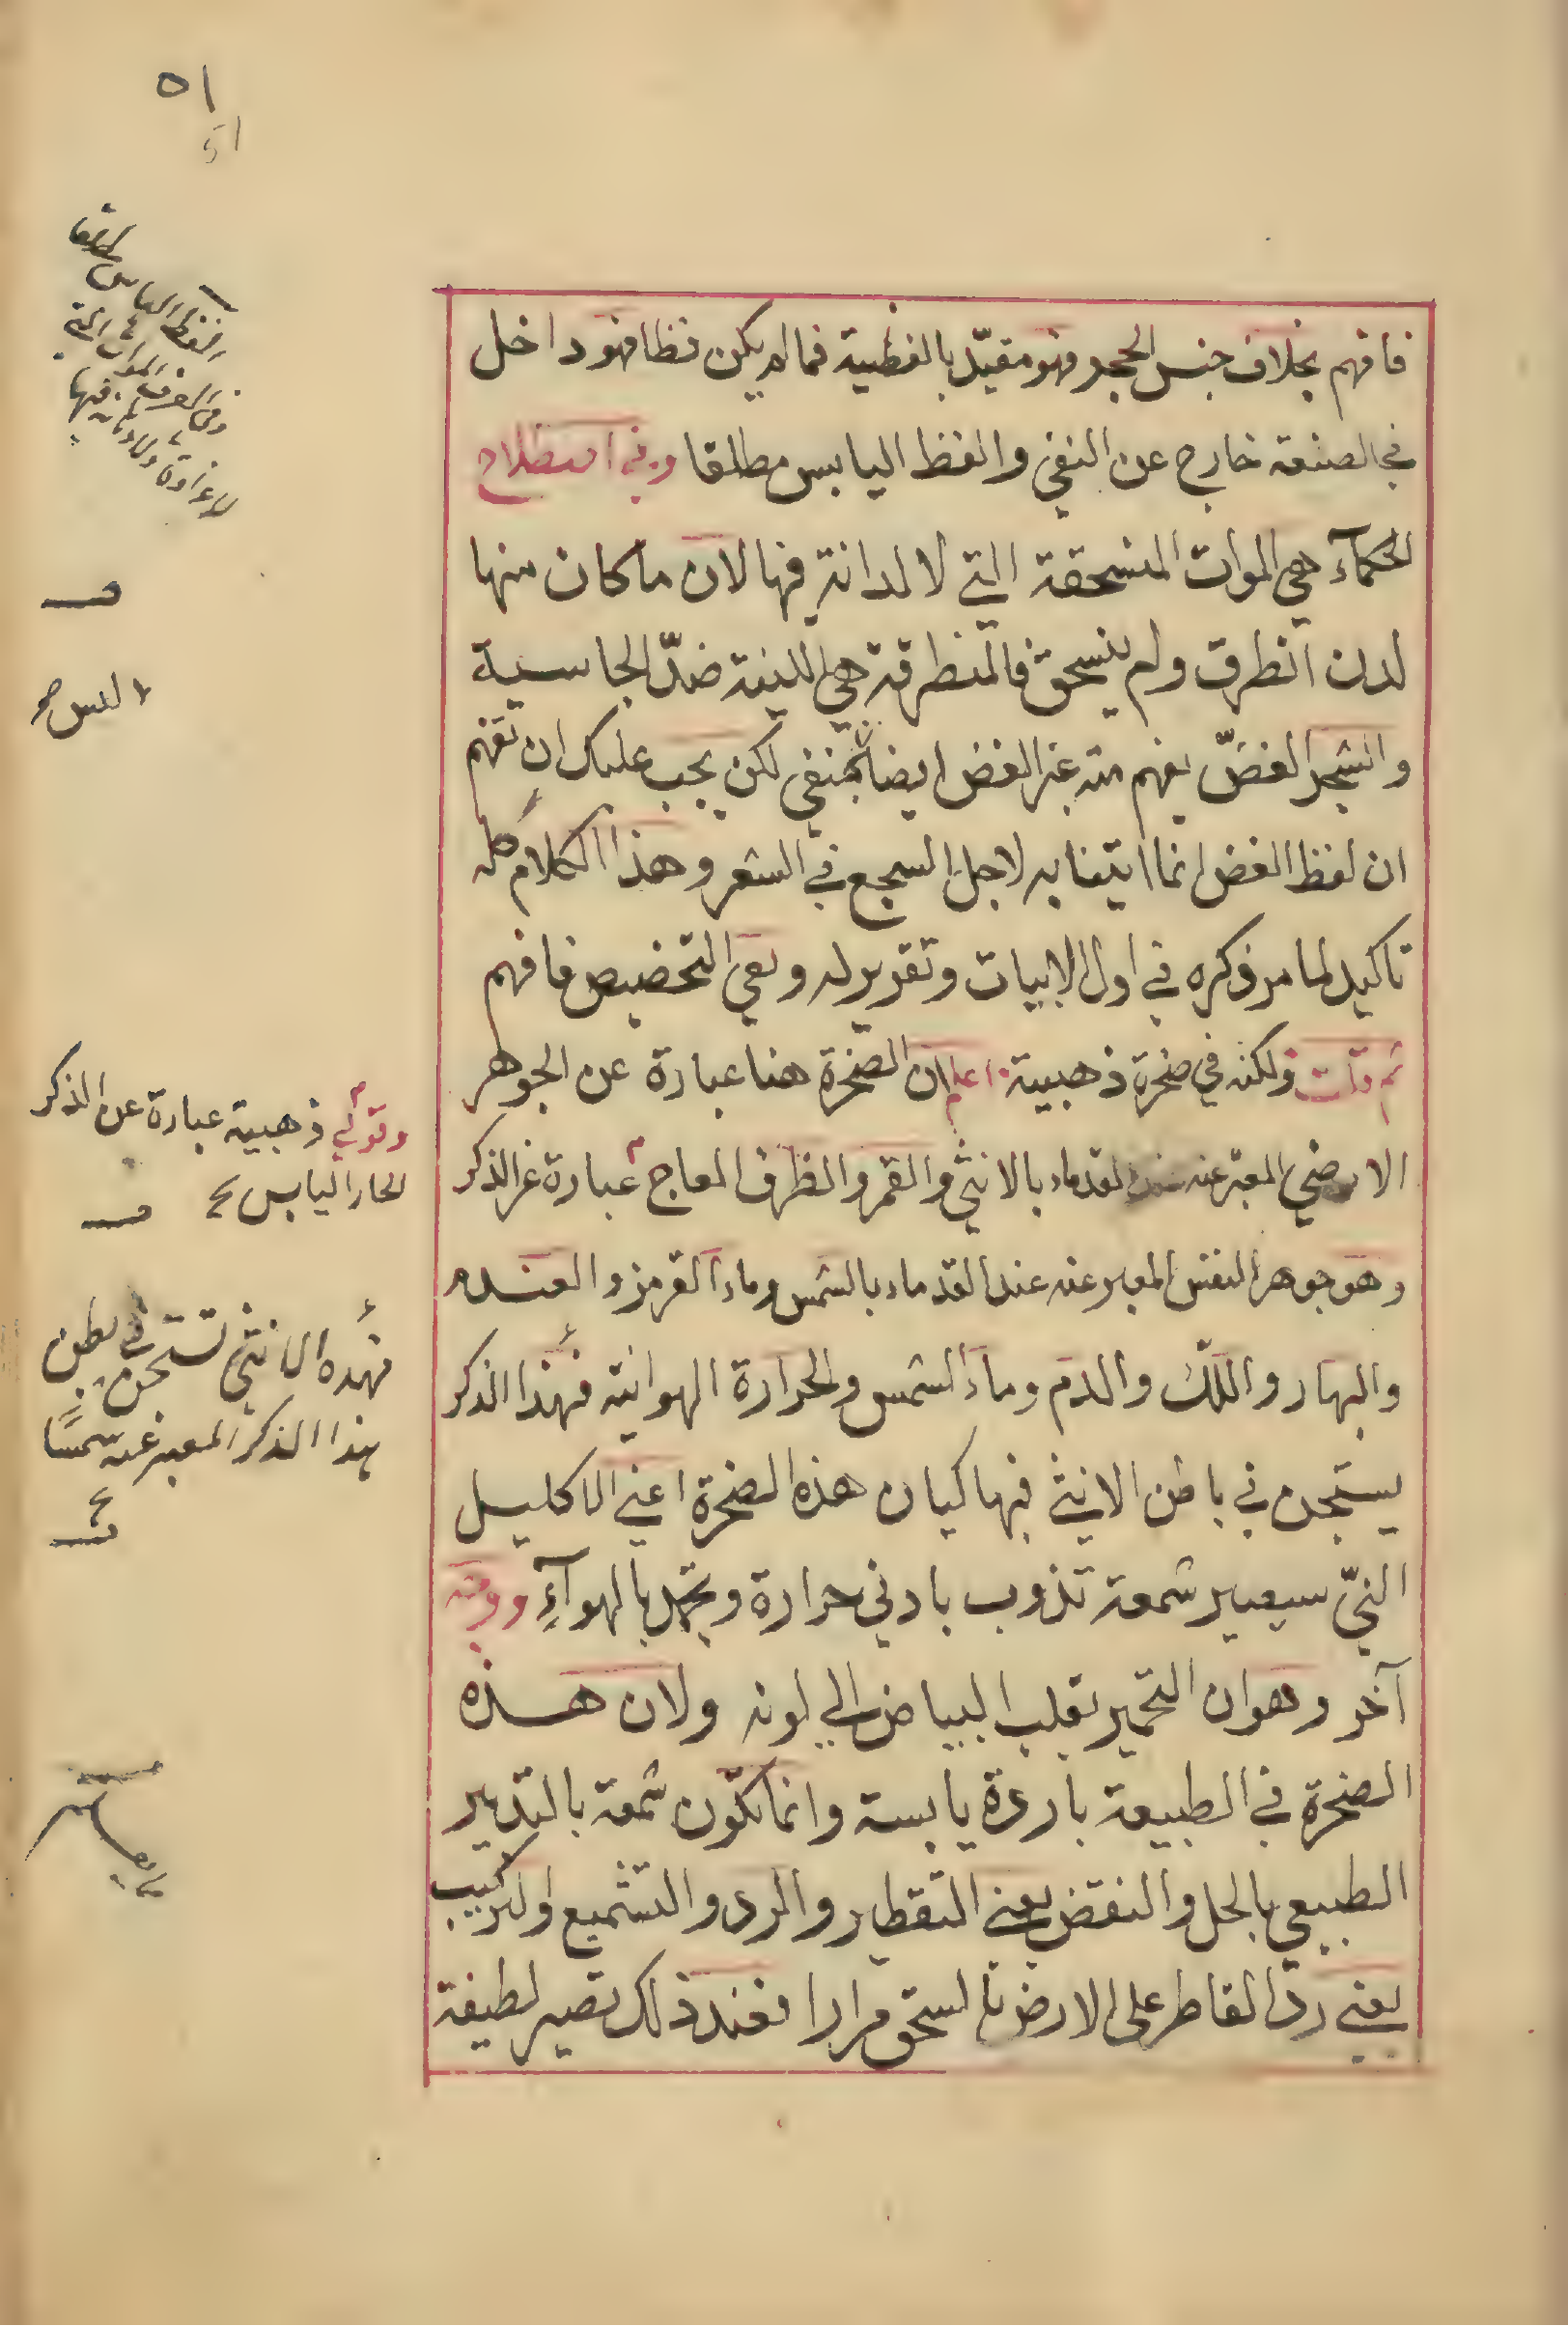 ٥١
فافهم بخلاف جنس الحجر فهو مقيّد بالفظية فما لم يكن فظا فهو داخل
في الصنعة خارج عن النفي والفظ اليابس مطلقا وفي اصطلاح
الحكمآء هي الموات المنسحقة التي لا لدانة فيها لان ما كان منها
لدن انطرق ولم ينسحق فالمنطرقة هي اللينة ضدّ الجاسية
والشجر الغضّ يفهم منه غير الغض ايضا منفي لكن يجب عليك ان تفهم
ان لفظ الغض انما اتينا به لاجل السجع في الشعر وهذا الكلام كله
تاكيد لما مر ذكره في اول الابيات وتقرير له وبقي التخصيص فافهم
ثم قلت ولكنه في صخرة ذهبية اعلم ان الصخرة هنا عبارة عن الجوهر
الارضي المعبر عنه عند القدماء بالانثى والقمر والظرف العاج عبارة عن الذكر
وهو جوهر النفس المعبر عنه عند القدماء بالشمس وماء القرمز والعندم
والبهار واللكّ والدم وماء الشمس والحرارة الهوائية فهذا الذكر
يستجن في باطن الانثى فبها كيان هذه الصخرة اعني الاكليل
النيّ سيصير شمعة تذوب بادنى حرارة وتجمد بالهوآء ووجه
آخر وهو ان التحمير يقلب البياض الى لونه ولان هذه
الصخرة في الطبيعة باردة يابسة وانما تكون شمعة بالتدبير
الطبيعي بالحل والنقض يعني التقطير والرد والتشميع والتركيب
يعني ردّ القاطر على الارض بالسحق مرارا فعند ذلك تصير لطيفة
وقولي ذهبية عبارة عن الذكر
الحار اليابس
فهذه الانثى تستجن في بطن
هذا الذكر المعبر عنه شمسًا